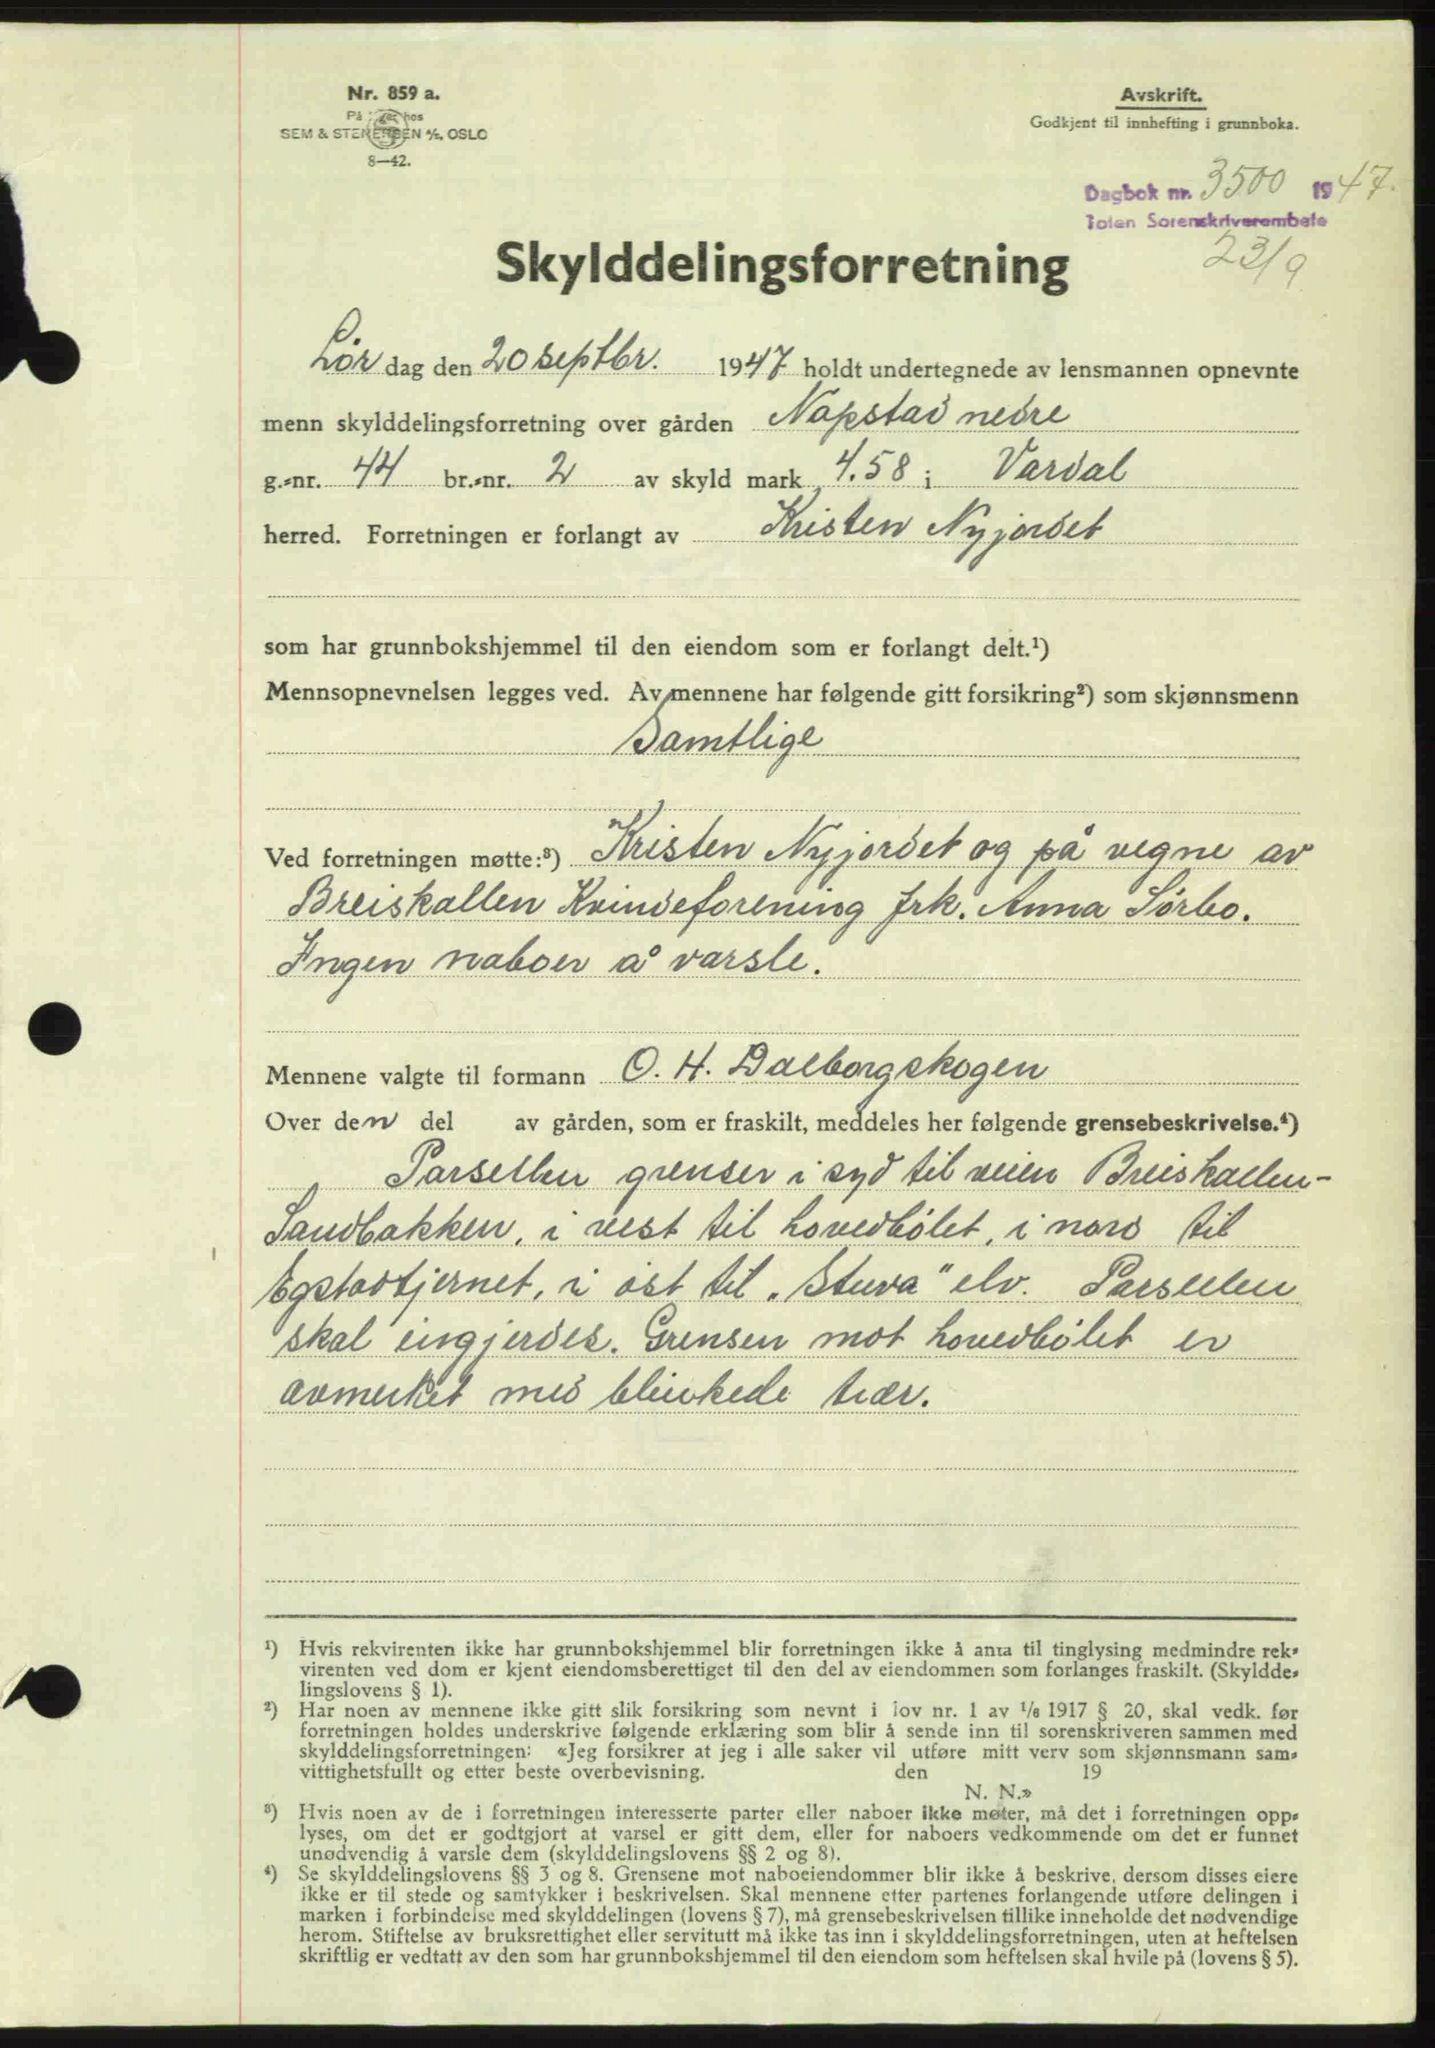 Nr. 859 a.
På lager hos
SEM & STENERSEN A/S, OSLO
8—42.
Avskrift.
Godkjent til innhefting i grunnboka.
Dagbok nr. 3500 1947.
Toten Sorenskriverembete
23/9
Skylddelingsforretning
Lør dag den 20 septbr. 1947 holdt undertegnede av lensmannen opnevnte
menn skylddelingsforretning over gården Napstad nedre
g.-nr. 44 br.-nr. 2 av skyld mark 4.58 i Vardal
herred. Forretningen er forlangt av Kristen Nyjordet
som har grunnbokshjemmel til den eiendom som er forlangt delt.¹)
Mennsopnevnelsen legges ved. Av mennene har følgende gitt forsikring²) som skjønnsmenn
Samtlige
Ved forretningen møtte:³) Kristen Nyjordet og på vegne av
Breiskallen Kvindeforening frk. Anna Sørbo.
Ingen naboer å varsle.
Mennene valgte til formann O. H. Dalborgskogen
Over den del av gården, som er fraskilt, meddeles her følgende grensebeskrivelse.⁴)
Parsellen grenser i syd til veien Breiskallen-
Sandbakken, i vest til hovedbølet, i nord til
Egstadtjernet, i øst til "Stuva" elv. Parsellen
skal inngjerdes. Grensen mot hovedbølet er
avmerket med blinkede trær.
¹) Hvis rekvirenten ikke har grunnbokshjemmel blir forretningen ikke å anta til tinglysing medmindre rek-
virenten ved dom er kjent eiendomsberettiget til den del av eiendommen som forlanges fraskilt. (Skyldde-
lingslovens § 1).
²) Har noen av mennene ikke gitt slik forsikring som nevnt i lov nr. 1 av 1/6 1917 § 20, skal vedk. før
forretningen holdes underskrive følgende erklæring som blir å sende inn til sorenskriveren sammen med
skylddelingsforretningen: «Jeg forsikrer at jeg i alle saker vil utføre mitt verv som skjønnsmann sam-
vittighetsfullt og etter beste overbevisning. den 19
N. N.»
³) Hvis noen av de i forretningen interesserte parter eller naboer ikke møter, må det i forretningen opp-
lyses, om det er godtgjort at varsel er gitt dem, eller for naboers vedkommende om det er funnet
unødvendig å varsle dem (skylddelingslovens §§ 2 og 8).
⁴) Se skylddelingslovens §§ 3 og 8. Grensene mot naboeiendommer blir ikke å beskrive, dersom disses eiere
ikke er til stede og samtykker i beskrivelsen. Skal mennene etter partenes forlangende utføre delingen i
marken i forbindelse med skylddelingen (lovens § 7), må grensebeskrivelsen tillike inneholde det nødvendige
herom. Stiftelse av bruksrettighet eller servitutt må ikke tas inn i skylddelingsforretningen, uten at heftelsen
skriftlig er vedtatt av den som har grunnbokshjemmel til den eiendom som heftelsen skal hvile på (lovens § 5).